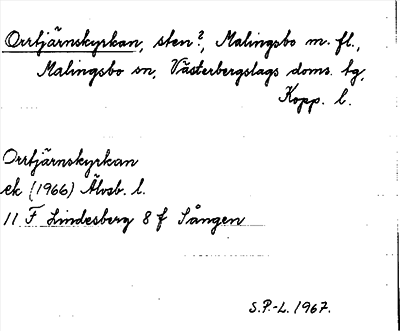 Orrtjärnskyrkan, sten?, Malingsbo m. fl.,
Malingsbo sn, Västerbergslags doms. tg,
Kopp. l.
Orrtjärnskyrkan
ek (1966) Älvsb. l.
11 F Lindesberg 8 f Sången
S.P.-L. 1967.